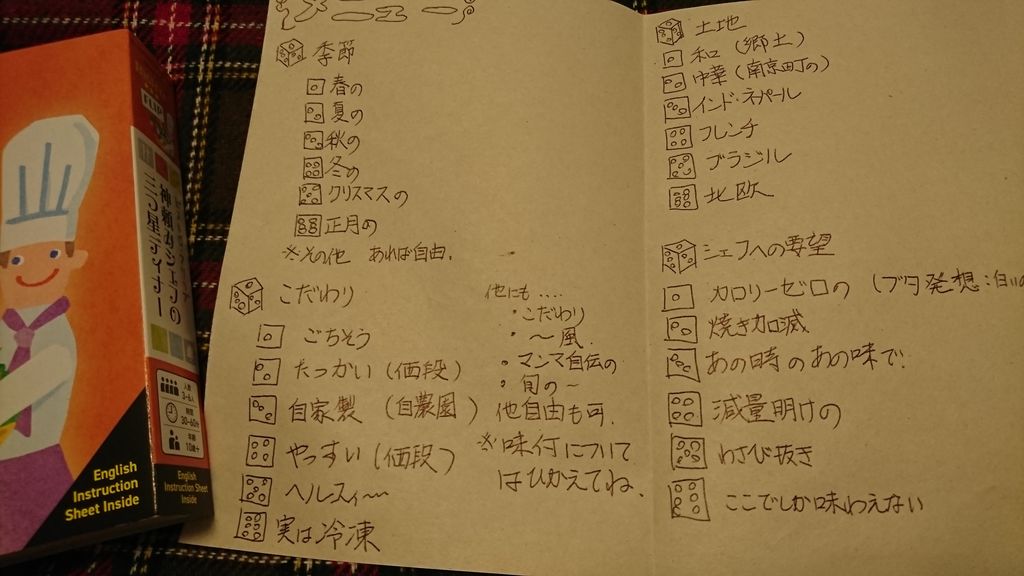 メニュー
季節
春の
夏の
秋の
冬の
クリスマスの
正月の
※その他 あれば自由.
こだわり
ごちそう
たっかい(価段)
自家製 (自農園)
やっすい(価段)
ヘルスィ〜〜
実は冷凍
他にも....
・こだわり
・〜風.
・マンマ自伝の
・旬の〜
他自由も可.
※味付について
はひかえてね.
土地
和(郷土)
中華(南京町の)
インド・ネパール
フレンチ
ブラジル
北欧
シェフへの要望
カロリーゼロの (ブタ発想:白いの
焼き加減
あの時のあの味で.
減量明けの
わさび抜き
ここでしか味わえない
三つ星ディナー
人数
3-6人
時間
30-60分
年齢
10歳+
English
Instruction
Sheet Inside
English
Instruction Sheet
Inside